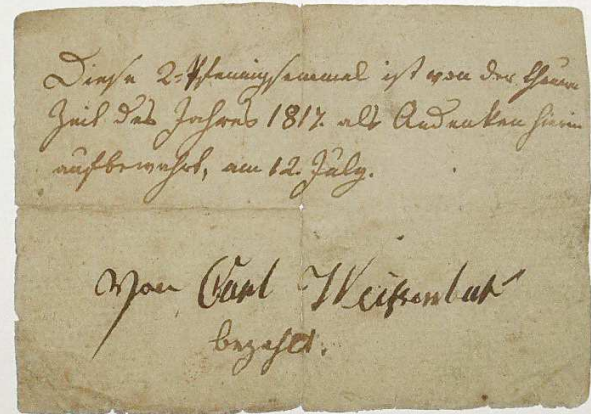 Diese 2=Pfennigsemmel ist von der theuern
Zeit des Jahres 1817. als Andenken hierin
aufbewahrt, am 12. July.
Von Carl
bezahlt.